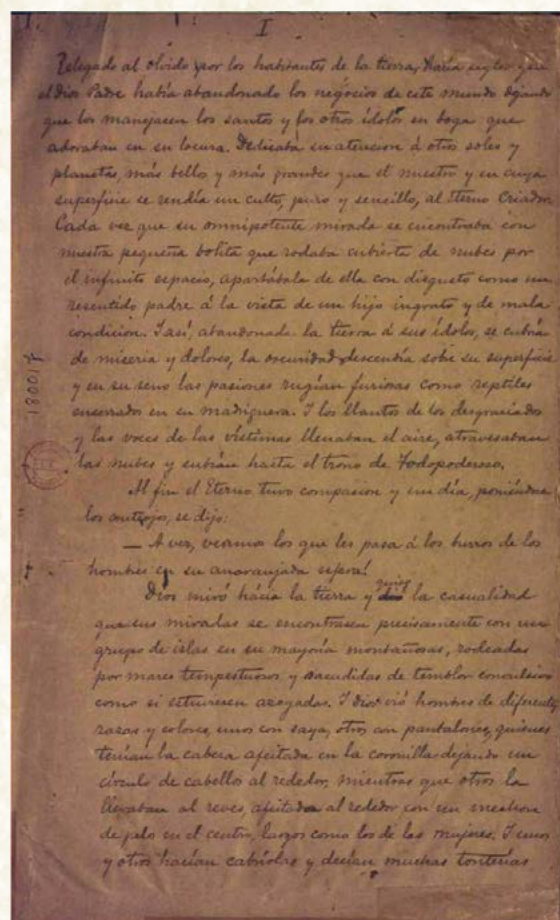 I
Relegado al olvido por los habitantes de la tierra, hacía siglos que
el dios Padre había abandonado los negocios de este mundo dejando
que los manejasen los santos y los otros ídolos en boga que
adoraban en su locura. Dedicaba su atencion á otros soles y
planetas, más bellos y más grandes que el nuestro y en cuya
superficie se rendía un culto, puro y sensillo, al Eterno Criador.
Cada vez que su omnipotente mirada se encontraba con
nuestra pequeña bolita que rodaba cubierta de nubes por
el infinito espacio, apartábala de ella con disgusto como un
resentido padre á la vista de un hijo ingrato y de mala
condicion. I así, abandonada la tierra á sus ídolos, se cubría
de miseria y dolores, la oscuridad descendía sobre su superficie
y en su seno las pasiones rugían furiosas como reptiles
encerrados en su madriguera. I los llantos de los desgraciados
y las voces de las víctimas llenaban el aire, atravesaban
las nubes y subían hasta el trono de Todopoderoso.
Al fin el Eterno tuvo compasion y un día, poniéndose
los anteojos, se dijo:
— A ver, veamos los que les pasa á los burros de los
hombres en su anaranjada esfera!
Dios miró hácia la tierra y quiso la casualidad
que sus miradas se encontrasen precisamente con un
grupo de islas en su mayoría montañosas, rodeadas
por mares tempestuosos y sacudidas de temblor convulsivo
como si estuviesen azogadas. I dios vió hombres de diferentes
razas y colores, unos con saya, otros con pantalones, quienes
tenían la cabeza afeitada en la coronilla dejando un
círculo de cabellos al rededor, mientras que otros la
llevaban al reves, afeitada al rededor con un
de pelo en el centro, largos como los de las mujeres. I unos
y otros hacían cabriolas y decían muchas tonterías
180017